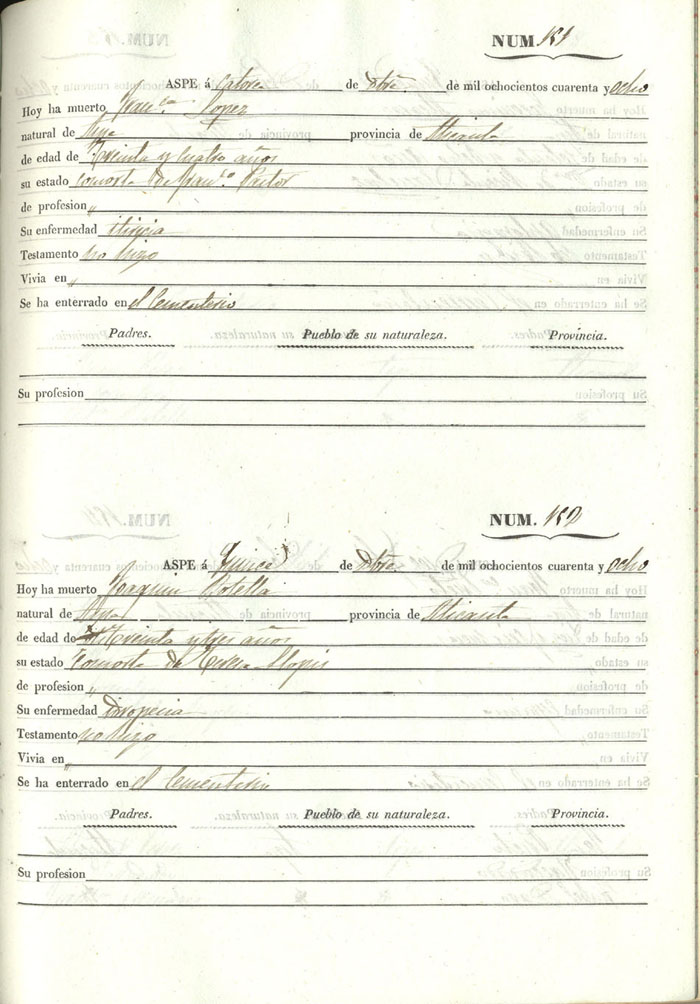 NUM. 151
ASPE á Catorce de Dbre. de mil ochocientos cuarenta y ocho
Hoy ha muerto Fran.ca Lopez
natural de Aspe provincia de Alicante
de edad de Treinta y cuatro años
su estado consorte de Fran.co Pritor
de profesion „
Su enfermedad
Testamento no hizo
Vivia en „
Se ha enterrado en el Cementerio
Padres. Pueblo de su naturaleza. Provincia.
Su profesion
NUM. 152
ASPE á Quince de Dbre. de mil ochocientos cuarenta y ocho
Hoy ha muerto Joaquin Botella
natural de Aspe provincia de Alicante
de edad de Treinta y tres años
su estado consorte de Teresa Llopis
de profesion „
Su enfermedad
Testamento no hizo
Vivia en „
Se ha enterrado en el Cementerio
Padres. Pueblo de su naturaleza. Provincia.
Su profesion